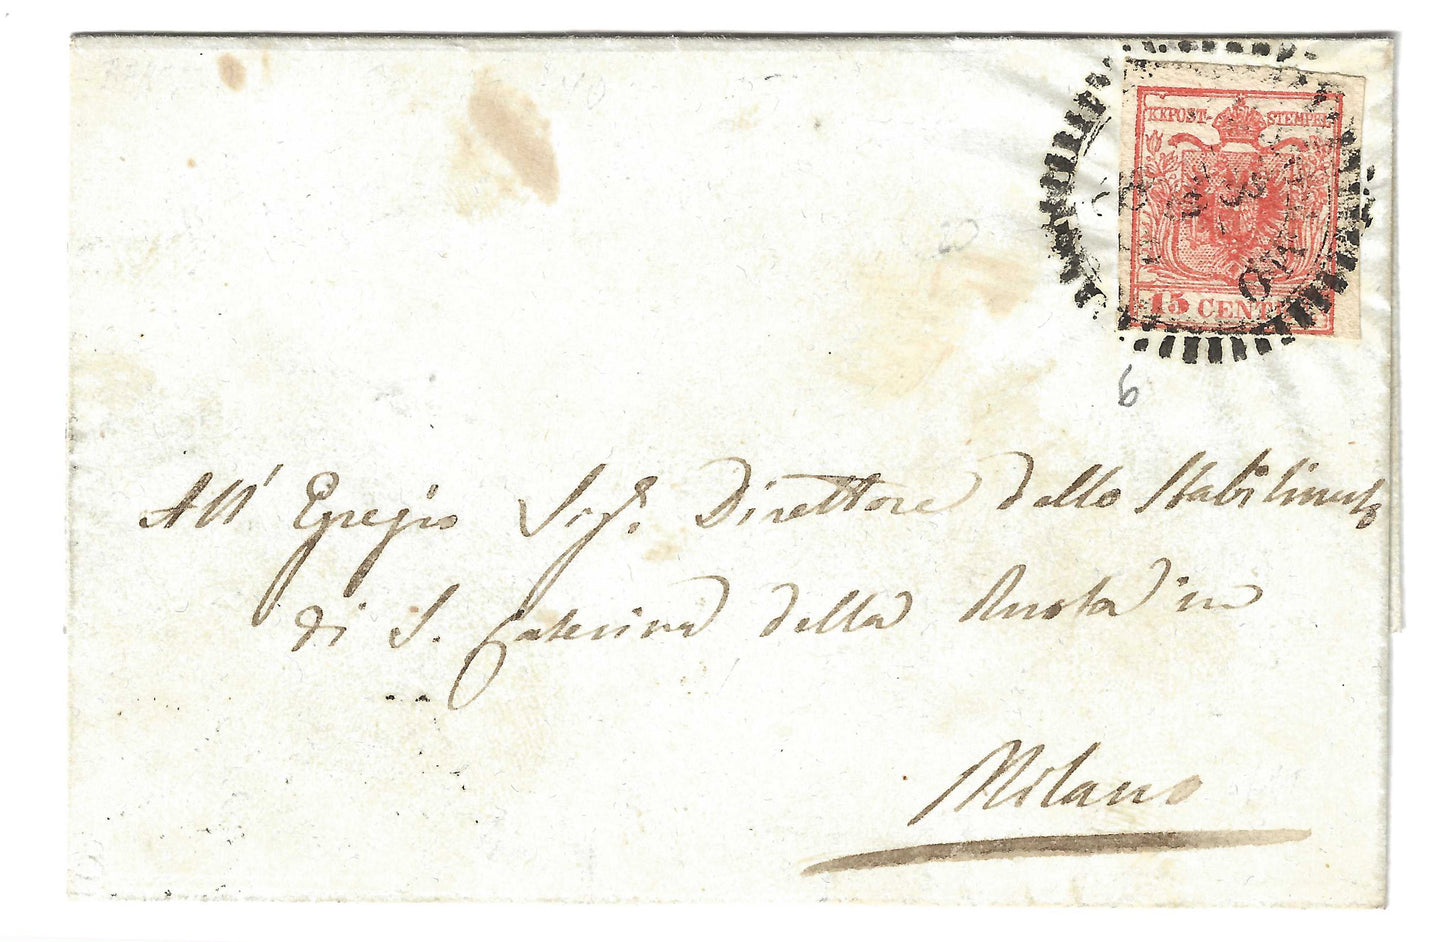 KKPOST-STEMPEL
15 CENTES
MILANO
6
All' Egregio Sigr. Direttore dello Stabilimento
di S. Caterina della Ruota in
Milano